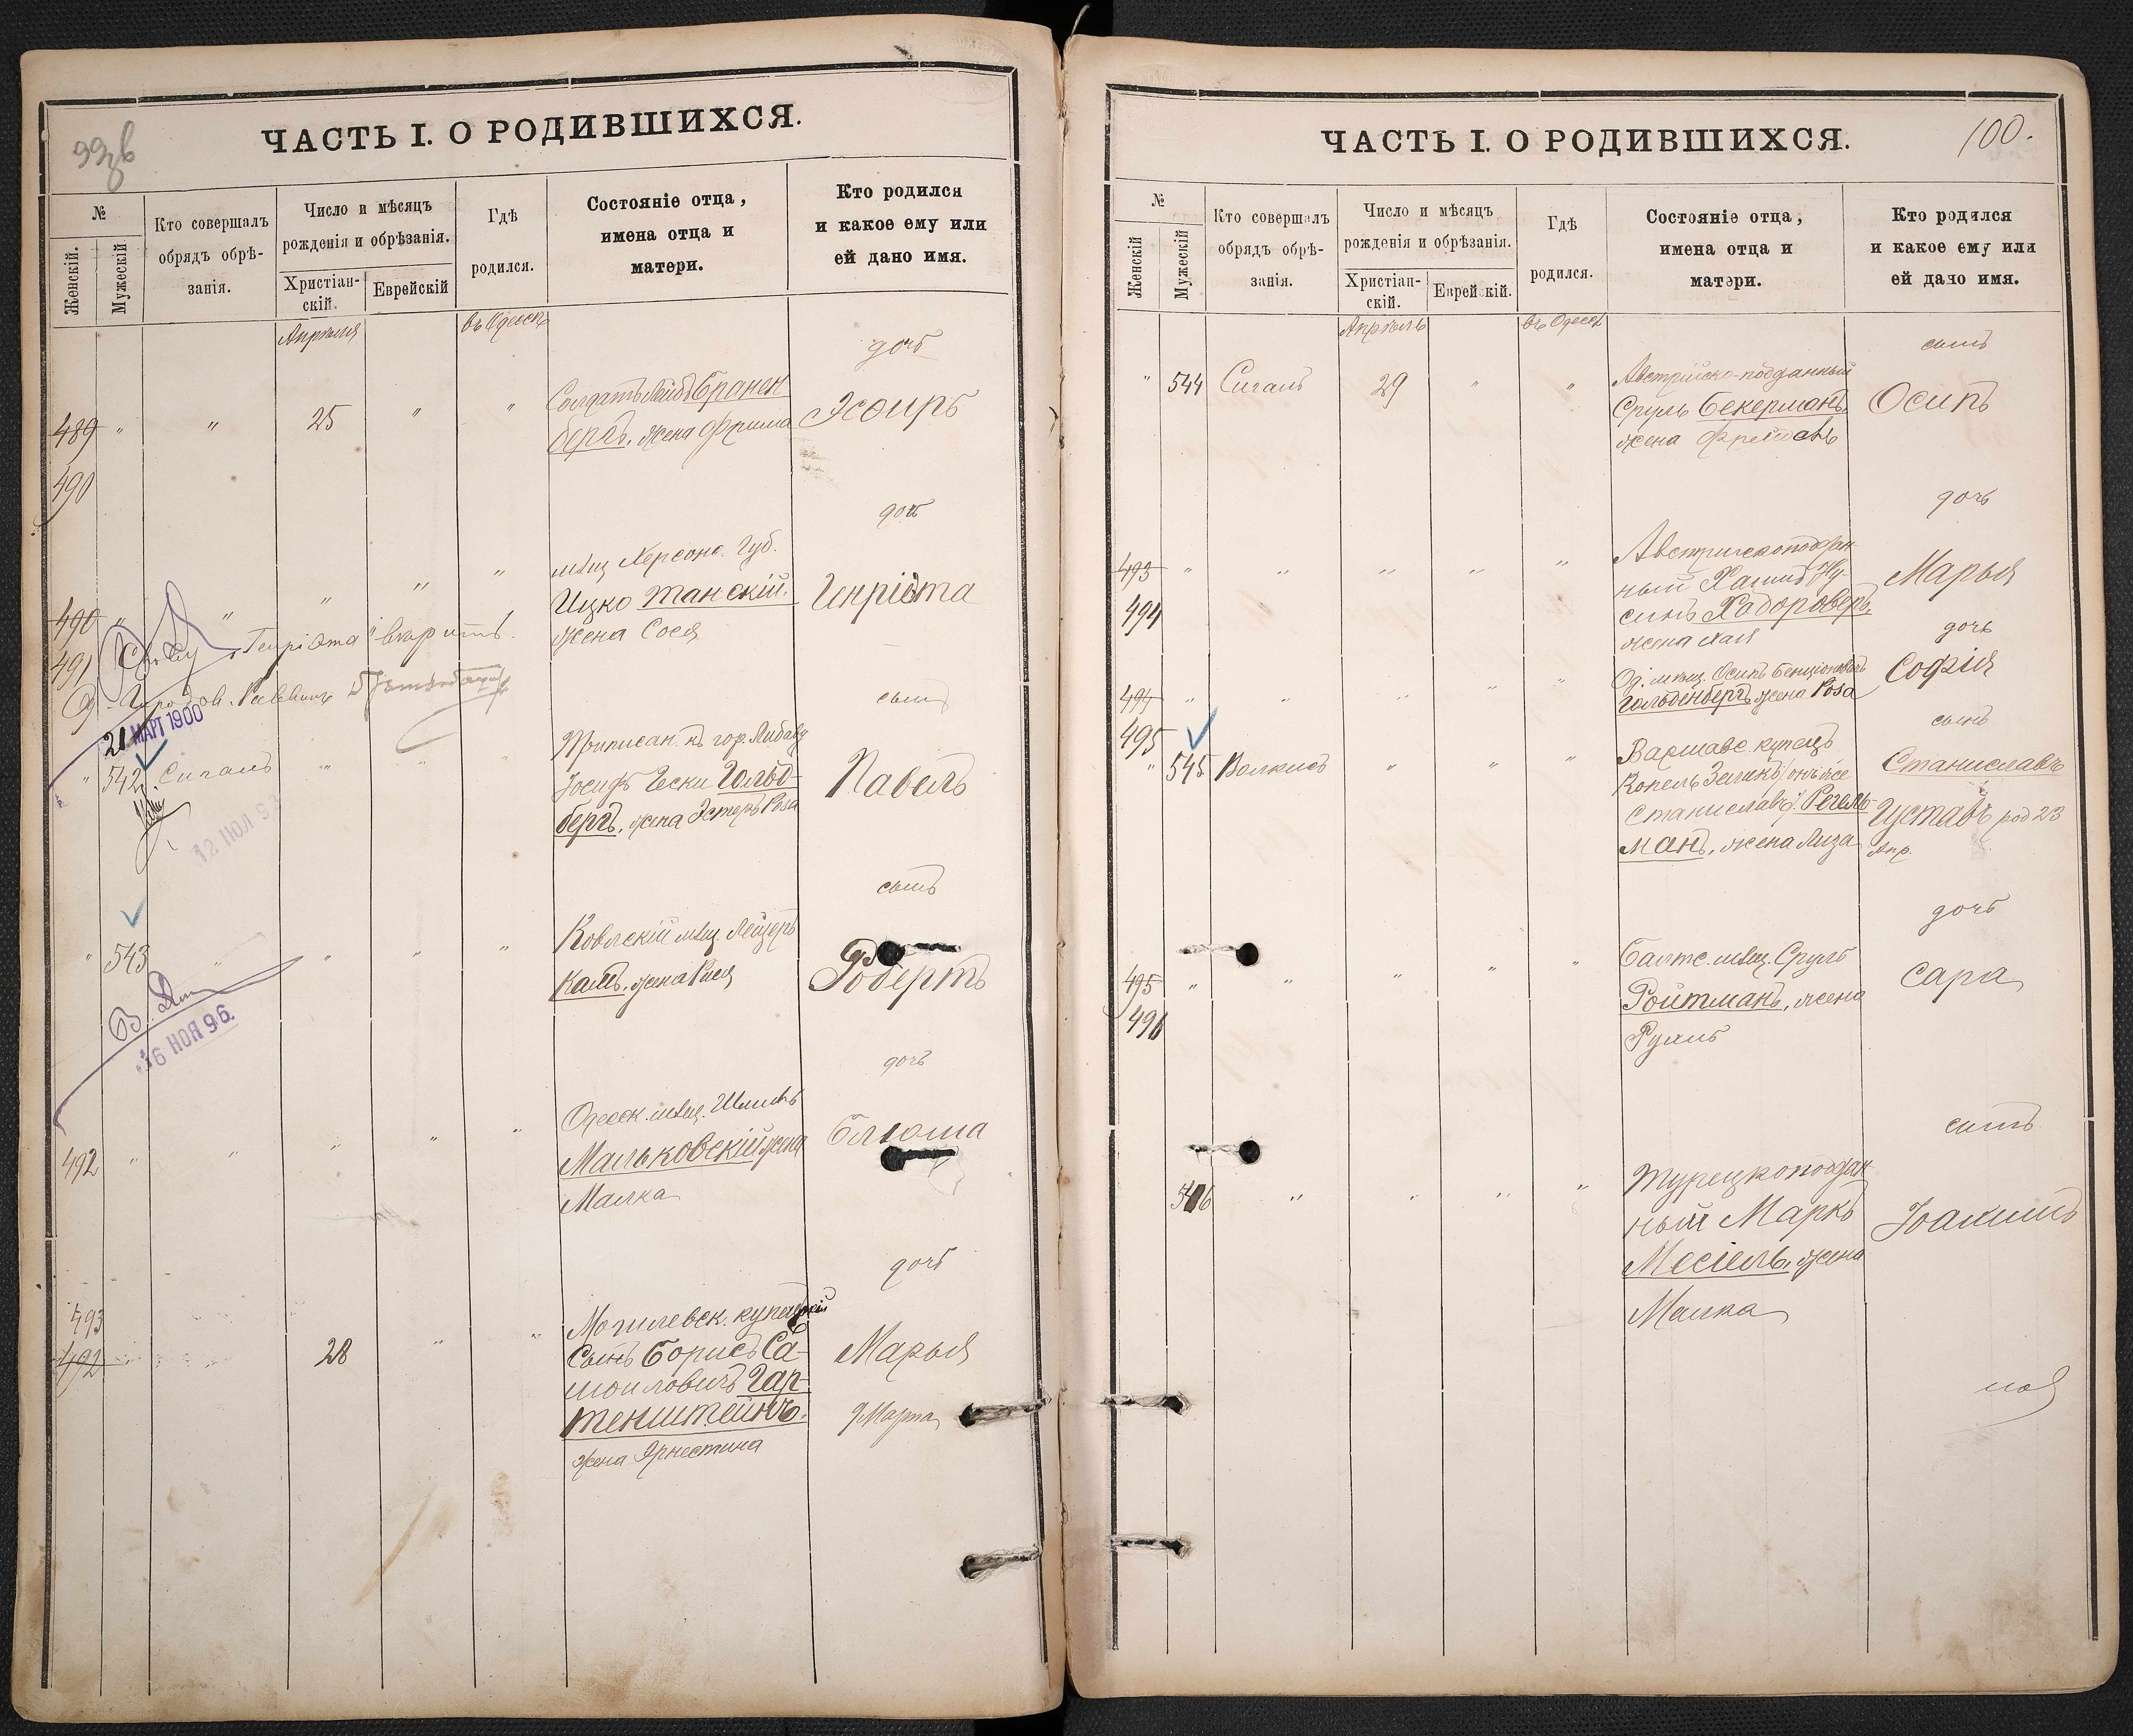 99об
ЧАСТЬ I. О РОДИВШИХСЯ.
№
Женскій.
Мужескій
Кто совершалъ
обрядъ обрѣ-
занія.
Число и мѣсяцъ
рожденія и обрѣзанія.
Христіан-
скій.
Еврейскій
Гдѣ
родился.
Состояніе отца,
имена отца и
матери.
Кто родился
и какое ему или
ей дано имя.
Апрѣля
въ Одессѣ
дочь
489 " " 25 " "
Солдатъ Лейбъ Бранен
бергъ, жена Фрима
Эсѳирь
490
дочь
490 " " " " "
мѣщ. Херсонс. Губ.
Ицко Танскій,
жена Сося
Генріэта
491
Генріэта " вѣрить.
Город. Раввинъ
21 МАРТ 1900
сынъ
" 542 Сигалъ " " "
Приписан. къ гор. Либаву
Іосифъ Гольд-
бергъ, жена Эстеръ Роза
Павелъ
12 ИЮЛ 93
сынъ
" 543 " " " "
Ковлскій мѣщ. Лейзеръ
Кацъ, жена
Робертъ
16 НОЯ 96.
дочь
492 " " " " "
Одесск. мѣщ.
Мальковскій жена
Малка
Блюма
дочь
493
492 28 " "
Могилевск. купеческій
Сынъ Борисъ Са-
мойловичъ Гар-
тенштейнъ.
жена Эрнестина
Марья
9 Марта
100.
ЧАСТЬ I. О РОДИВШИХСЯ.
№
Женскій
Мужескій
Кто совершалъ
обрядъ обрѣ-
занія.
Число и мѣсяцъ
рожденія и обрѣзанія.
Христіан-
скій.
Еврейскій.
Гдѣ
родился.
Состояніе отца,
имена отца и
матери.
Кто родился
и какое ему или
ей дано имя.
Апрѣль
въ Одессѣ
сынъ
" 544 Сигалъ 29 " "
Австрійско-подданный
Сруль Бекерманъ,
жена
Осипъ
дочь
493 " " " " "
Австрическоподдан
ный Хаимъ Ну-
синъ
жена Хая
Марья
494
дочь
494 " " " " "
Од. мѣщ. Осипъ Бенціоновичъ
Гольденбергъ жена Роза
Софія
495
сынъ
" 545 Волкисъ " " "
Варшавс. купецъ
Копель Зеликъ (онъ же
Станиславъ) Регель-
манъ, жена Лиза
Станиславъ
Густавъ род 23
Апр.
дочь
495 " " " " "
Балтс. мѣщ. Сруль
Ройтманъ, жена
Рухль
Сара
496
сынъ
546 " " " "
Турецкоподдан
ный Маркъ
Месіель, жена
Малка
Іоахимъ